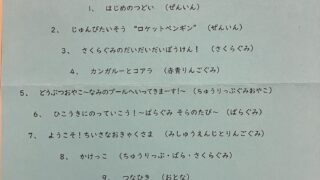 1、 はじめのつどい (ぜんいん)
2、 じゅんびたいそう “ロケットペンギン” (ぜんいん)
3、 さくらぐみのだいだいだいぼうけん! (さくらぐみ)
4、 カンガルーとコアラ (赤青りんごぐみ)
5、 どうぶつおやこ~なみのプールへいってきまーす!~ (ちゅうりっぷぐみおやこ)
6、 ひこうきにのっていこう!~ばらぐみ そらのたび~ (ばらぐみ)
7、 ようこそ!ちいさなおきゃくさま (みしゅうえんじとりんごぐみ)
8、 かけっこ (ちゅうりっぷ・ばら・さくらぐみ)
9、 つなひき (おとな)